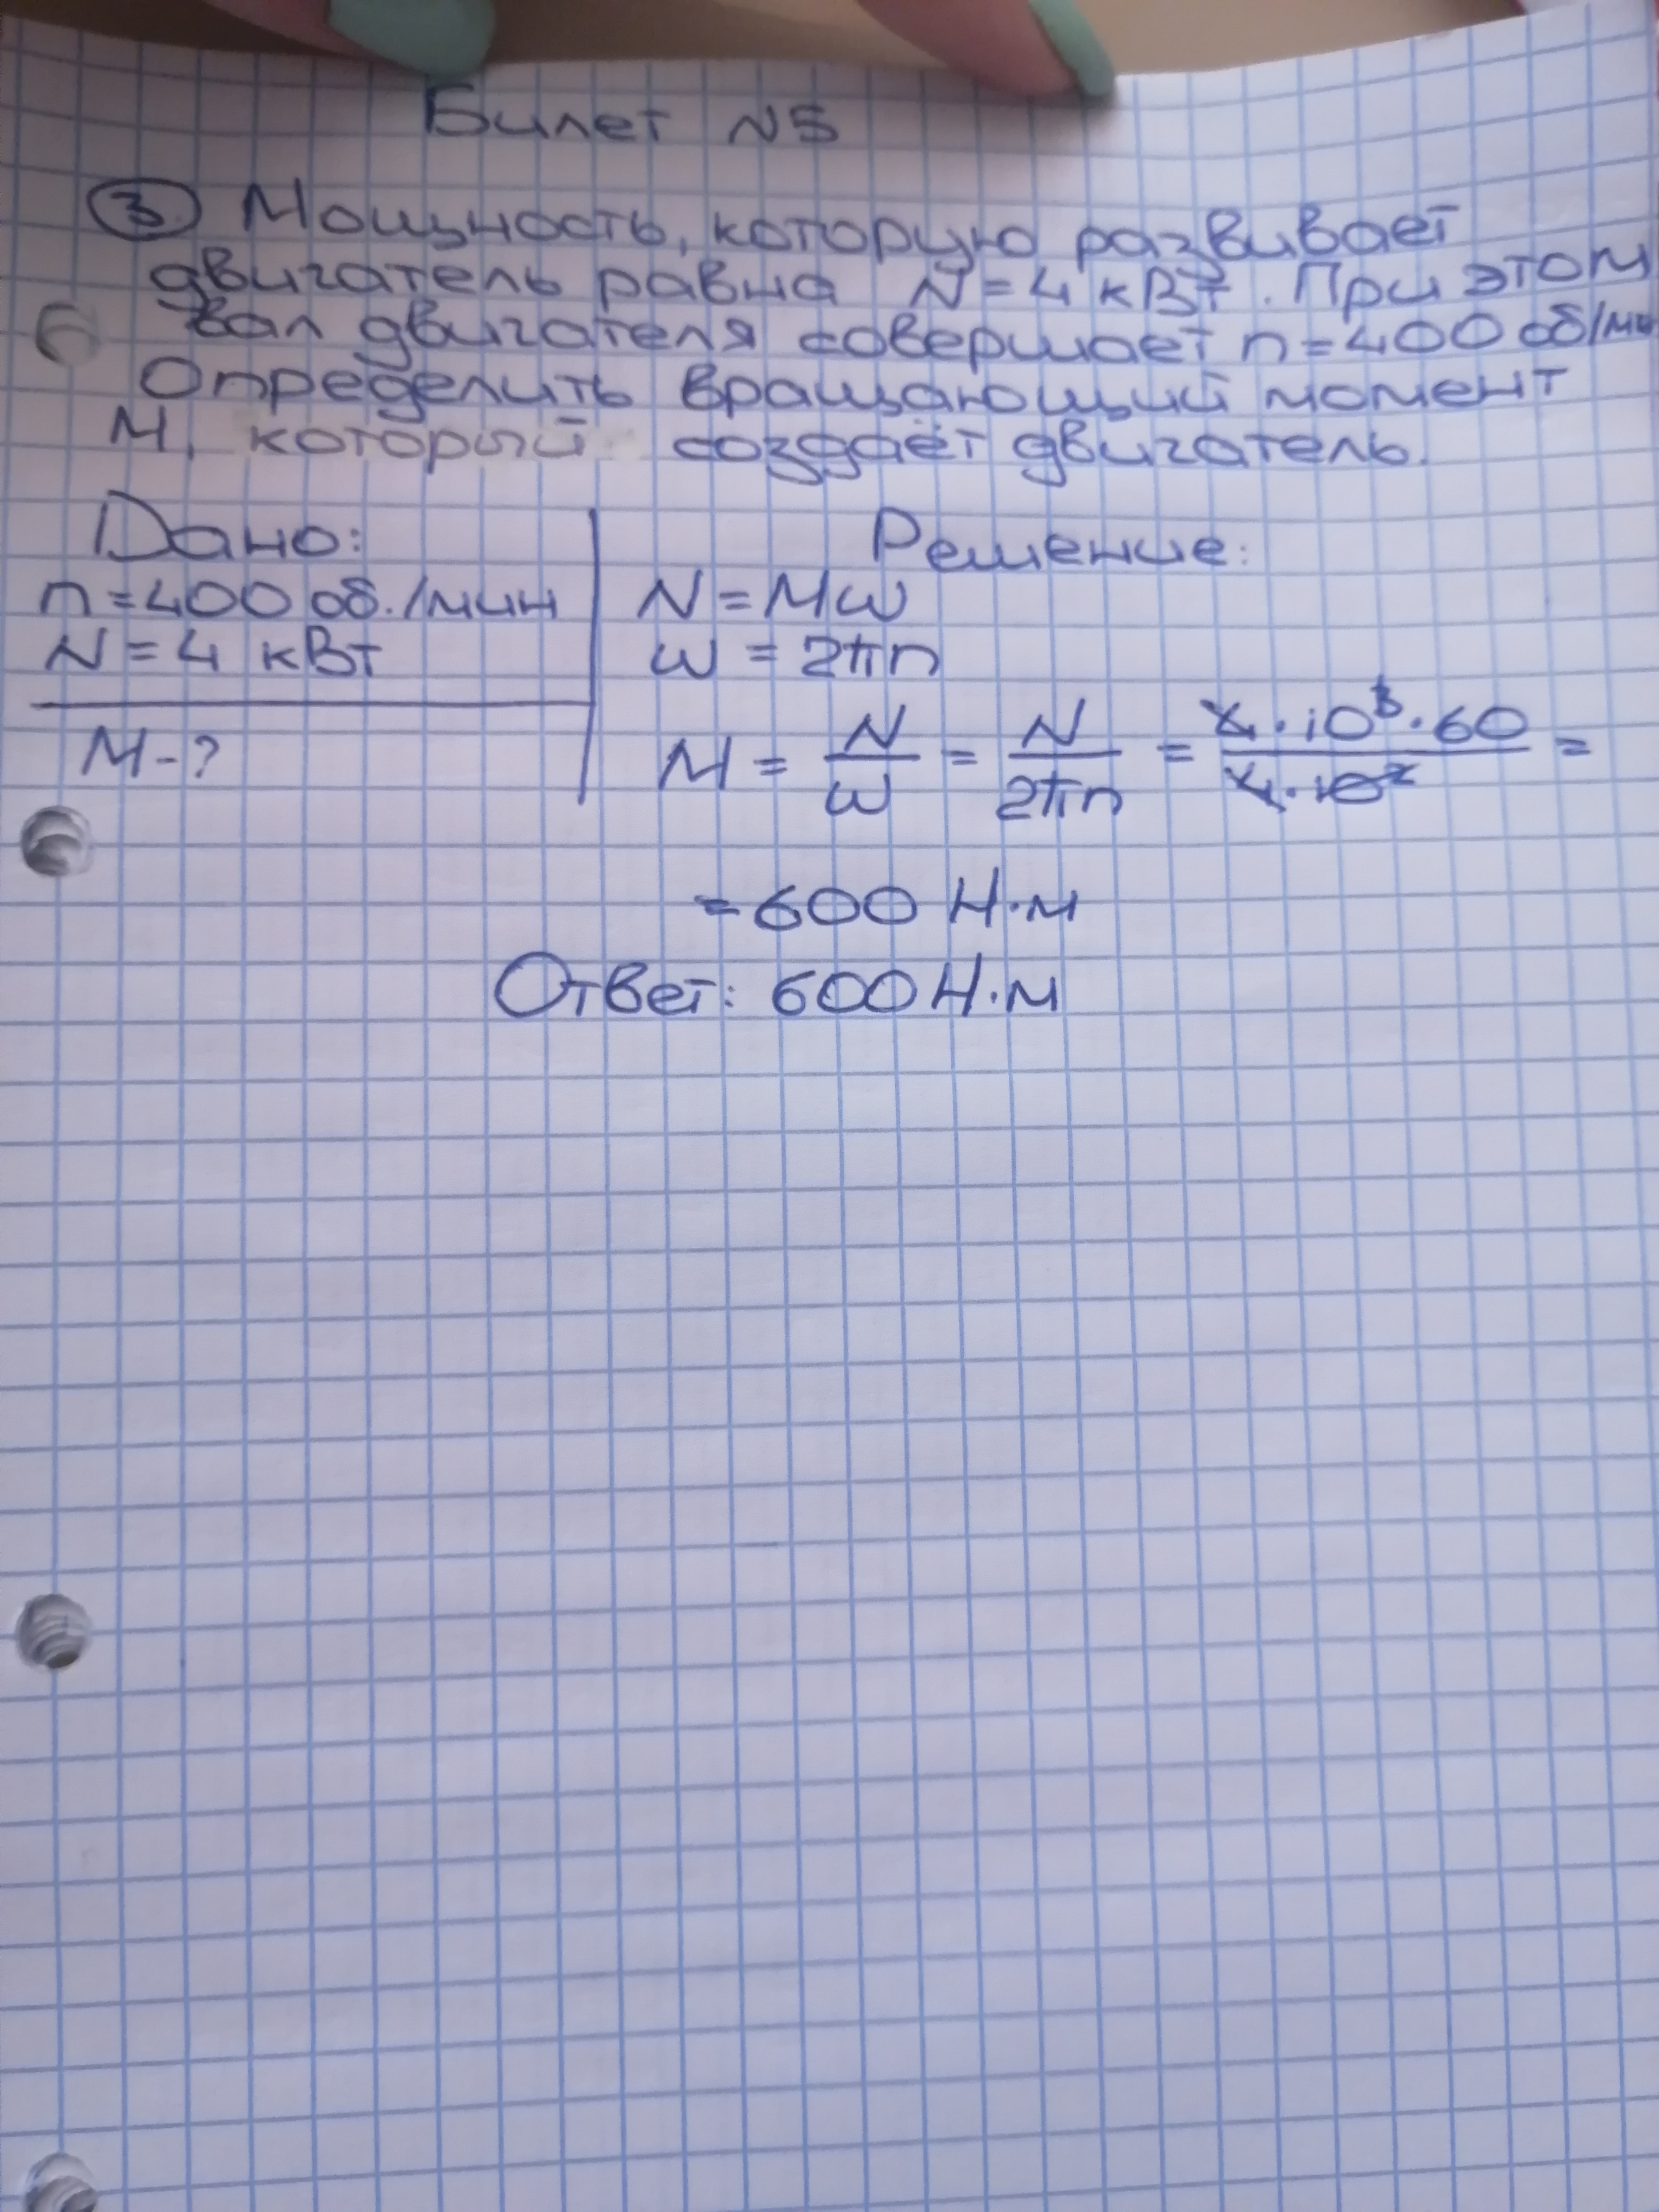 Билет N5
③ Мощность, которую развивает
двигатель равна N = 4 кВт. При этом
вал двигателя совершает n = 400 об/мин
Определить вращающий момент
М, который создаёт двигатель.
Дано:
n = 400 об./мин
N = 4 кВт
М - ?
Решение:
N = Mω
ω = 2πn
M = N/ω = N/2πn = 4·10³·60/4·10² =
= 600 Н·м
Ответ: 600 Н·м